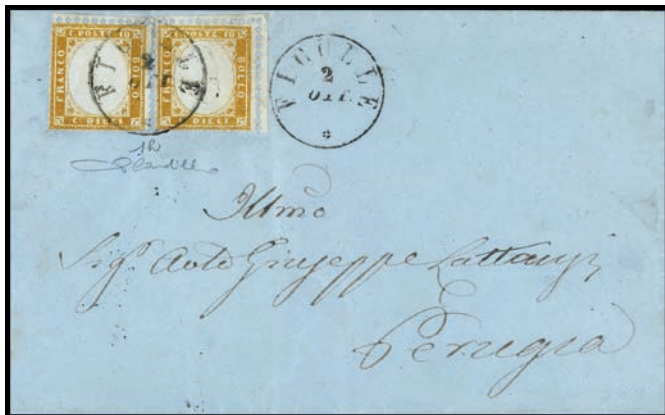 C. POSTE 10
FRANCO
BOLLO
C. DIECI
C. POSTE 10
FRANCO
BOLLO
C. DIECI
FICULLE
2
OTT.
FICULLE
2
OTT.
Illmo
Sigr. Avto Giuseppe Lattanzi
Perugia